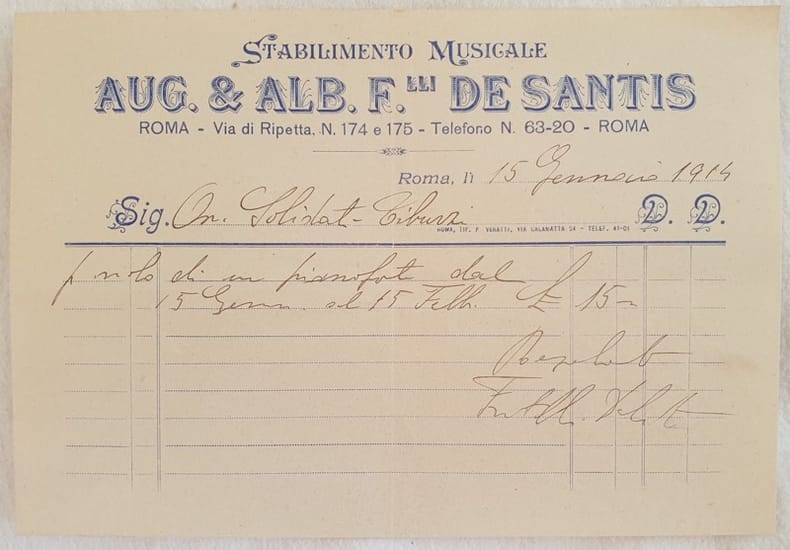 STABILIMENTO MUSICALE
AUG. & ALB. F.LLI DE SANTIS
ROMA - Via di Ripetta, N. 174 e 175 - Telefono N. 63-20 - ROMA
Roma, lì 15 Gennaio 1914
Sig. On. Solidati-Tiburzi D. D.
ROMA, TIP. F. VERATTI, VIA 54 - TELEF. 41-01
p nolo di un pianoforte dal
15 Genn. al 15 Febb. £ 15-
Fratelli